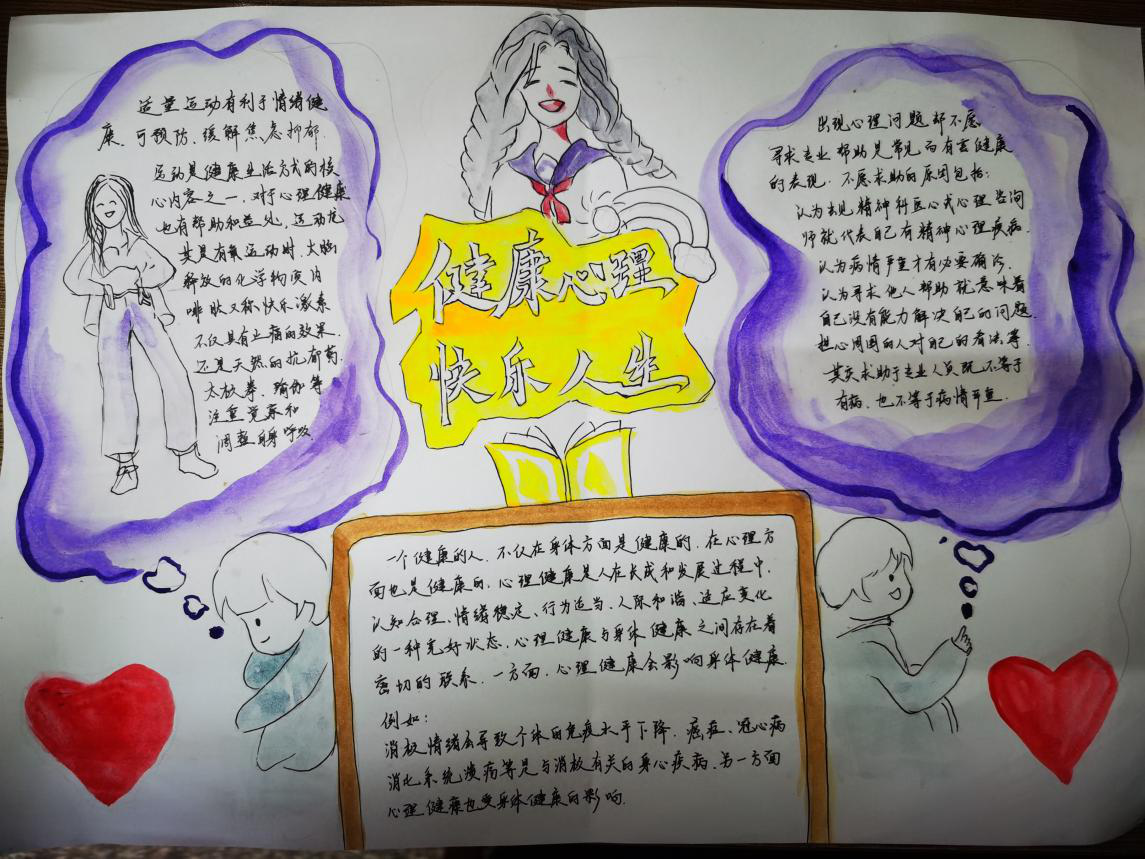 适量运动有利于情绪健
康、可预防、缓解焦虑抑郁.
运动是健康生活方式的核
心内容之一.对于心理健康
也有帮助和益处.运动尤
其是有氧运动时.大脑
释放的化学物质内
啡肽又称快乐激素
不仅具有止痛的效果.
还是天然的抗郁药.
太极拳、瑜伽等
注重觉察和
调整自身呼吸.
健康心理
快乐人生
出现心理问题却不愿
寻求专业帮助是常见而有害健康
的表现.不愿求助的原因包括:
认为去见精神科医心或心理咨询
师就代表自己有精神心理疾病.
认为病情严重才有必要确诊.
认为寻求他人帮助就意味着
自己没有能力解决自己的问题.
担心周围的人对自己的看法等.
其实求助于专业人员既不等于
有病.也不等于病情严重.
一个健康的人.不仅在身体方面是健康的.在心理方
面也是健康的.心理健康是人在长成和发展过程中.
认知合理、情绪稳定、行为适当、人际和谐、适应变化
的一种完好状态.心理健康与身体健康之间存在着
密切的联系.一方面.心理健康会影响身体健康.
例如:
消极情绪会导致个体的免疫水平下降.癌症、冠心病
消化系统溃病等是与消极有关的身心疾病.另一方面
心理健康也受身体健康的影响.